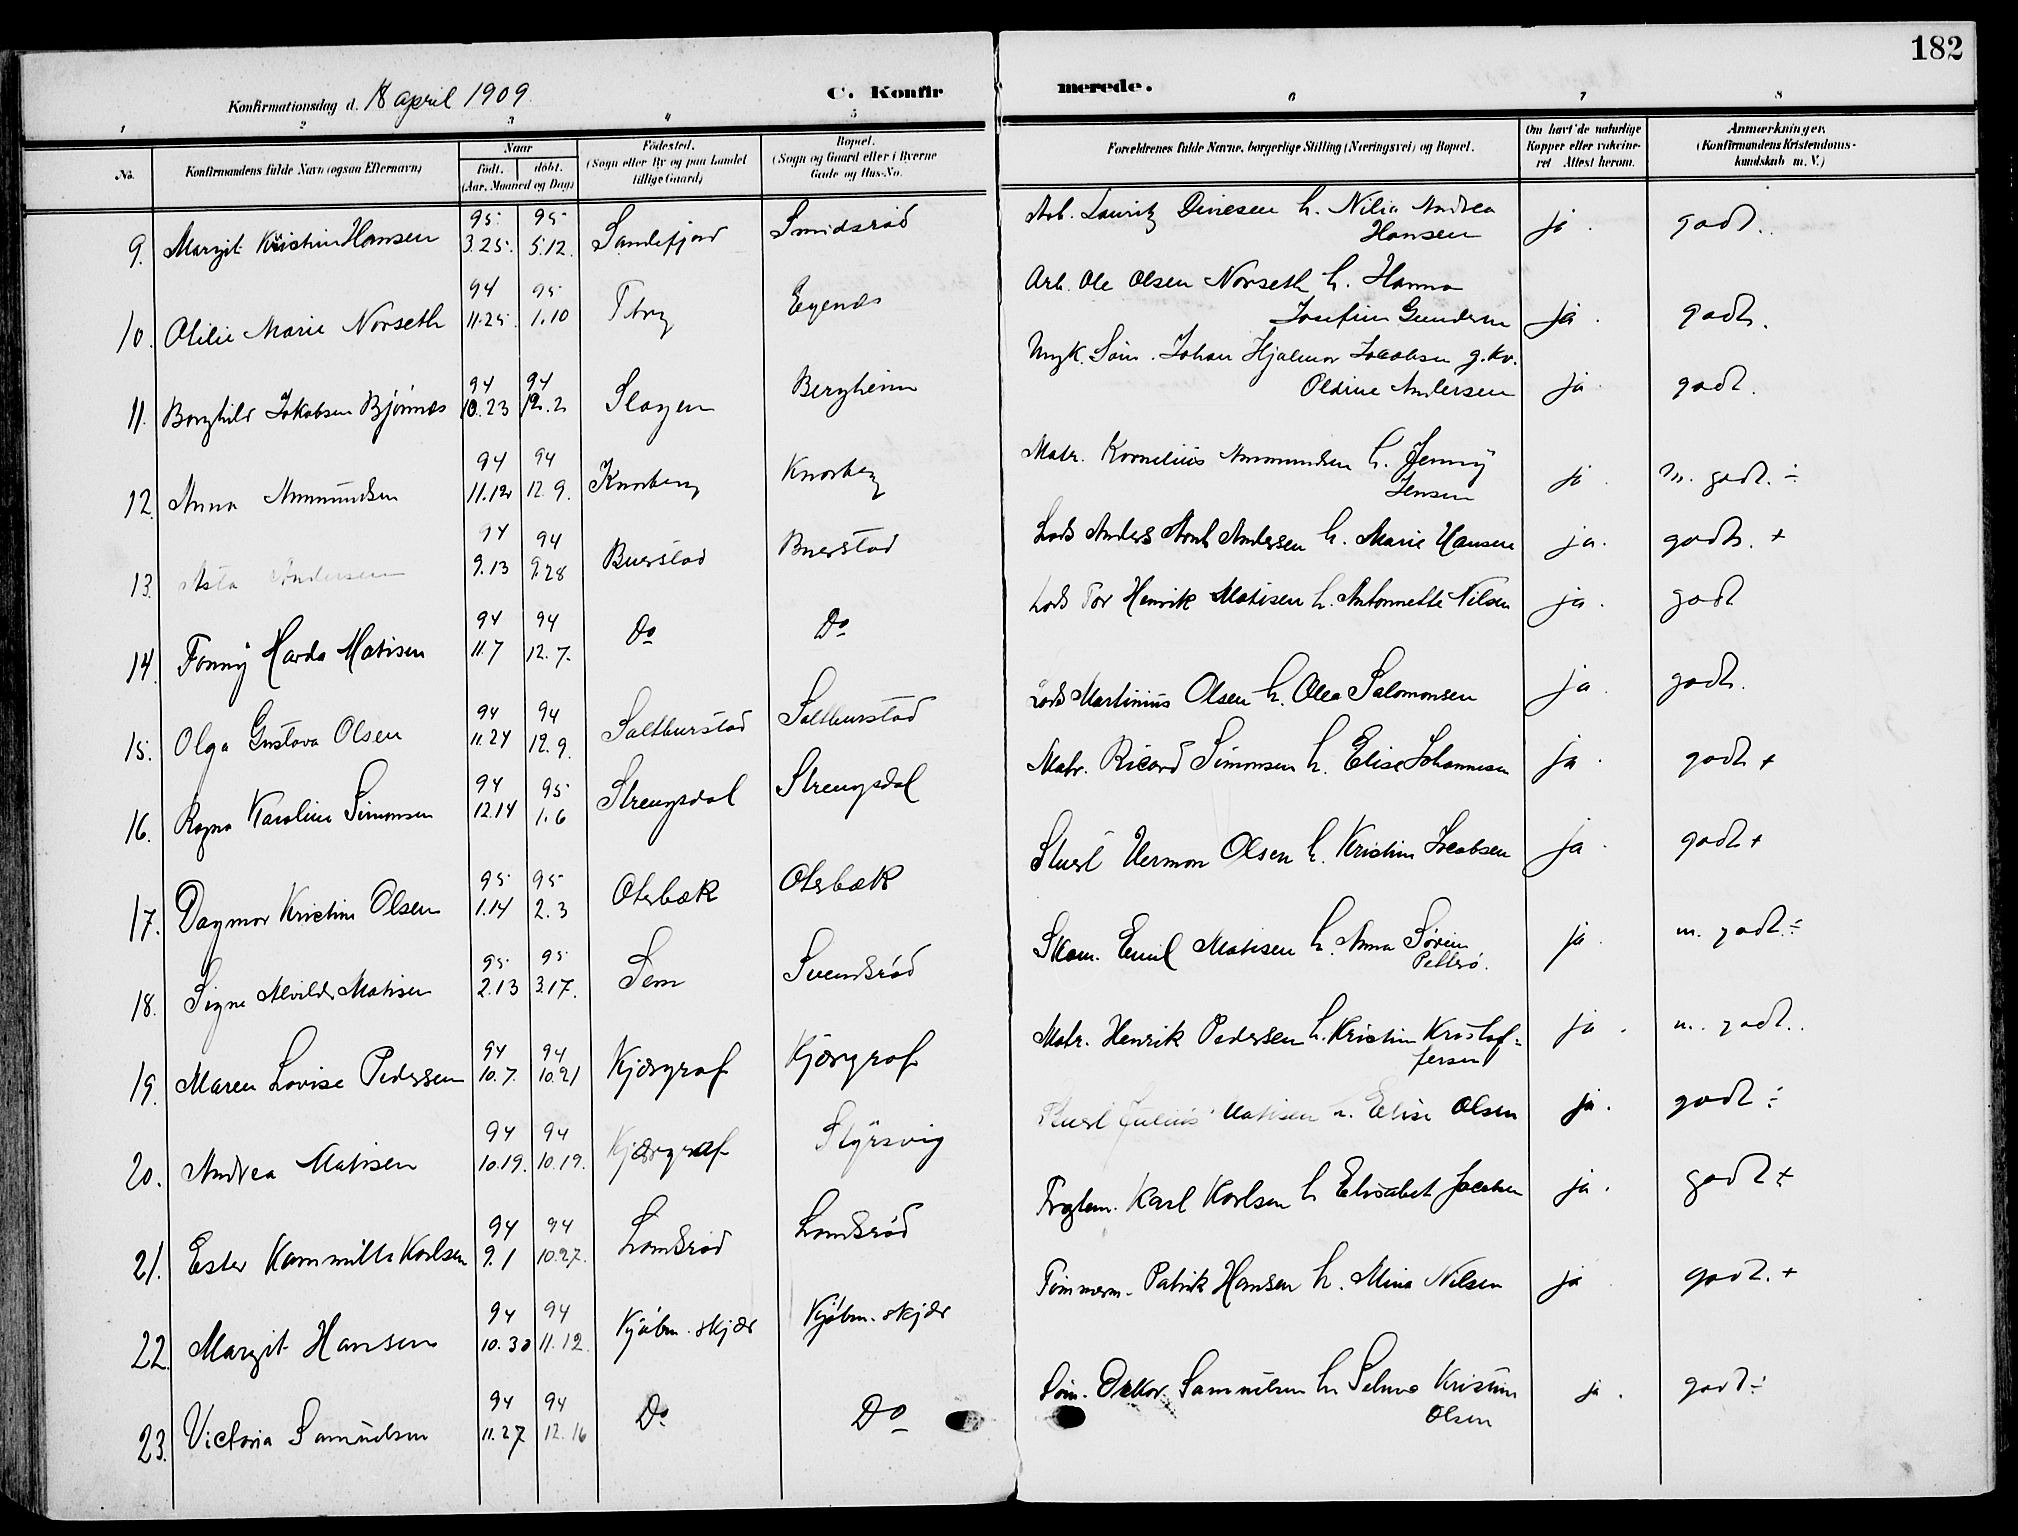 182
Konfirmationsdag d. 18 april 1909
C. Konfir merede.
1 2 3 4 5 6 7 8
No. Konfirmandens fulde Navn (ogsaa Efternavn) Naar födt. döbt. (Aar, Maaned og Dag) Födested. (Sogn eller By og paa Landet tillige Gaard) Bopæl. (Sogn og Gaard eller i Byerne Gade og Hus-No. Forældrenes fulde Navne, borgerlige Stilling (Næringsvei) og Bopæl. Om havt de naturlige Kopper eller vakcineret Attest herom. Anmærkninger. (Konfirmandens Kristendomskundskab m. V.)
9. Margit Kristine Hansen 95 3.25. 95 5.12. Sandefjord Smidsröd Arb. Lauritz Dinesen h. Nilia Andrea Hansen ja. godt.
10. Otilie Marie Norseth 94 11.25. 95 1.10 Egenæs Arb. Ole Olsen Norseth h. Hanna Josefine Gundersen ja. godt.
11. Borghild Jakobsen Bjönnes 94 10.23 94 12.2 Slagen Bergheim Ungk. Söm. Johan Hjalmar Jacobsen g. kv. Oldine Andersen ja. godt.
12. Anna Ammundsen 94 11.12 94 12.9. Knarberg Knarberg Matr. Kornelius Ammundsen h. Jenny Jensen ja. m. godt. ÷
13. Asta Andersen 94 9.13 94 9.28 Buerstad Buerstad Lods Anders Andersen h. Marie Hansen ja. godt. +
14. Fanny Harda Matisen 94 11.7 94 12.7. Do Do Lods Tor Henrik Matisen h. Antonnette Nilsen ja. godt
15. Olga Gustava Olsen 94 11.24 94 12.9. Saltburstad Saltburstad Lods Martinius Olsen h. Olea Salomonsen ja. godt.
16. Ragna Karoline Simonsen 94 12.14 95 1.6 Strengsdal Strengsdal Matr. Ricard Simonsen h. Elise Johannesen ja. godt +
17. Dagmar Kristine Olsen 95 1.14 95 2.3 Oterbæk Oterbæk Stuert Herman Olsen h. Kristine Jacobsen ja. godt +
18. Signe Alvilde Matisen 95 2.13 95 3.17. Sem Svendsröd Skom. Emil Matisen h. Anna Sörine Petterö. ja. m. godt. ÷
19. Maren Lovise Pedersen 94 10.7. 94 10.21 Kjærgraf Kjærgraf Matr. Henrik Pedersen h. Kristine Kristoffersen ja. m. godt.
20. Andrea Matisen 94 10.19. 94 10.19. Kjærgraf Styrsvig Stuert Julius Matisen h. Elise Olsen ja. godt ÷
21. Ester Kammilla Karlsen 94 9.1 94 10.27. Lomsröd Lomsröd Karl Karlsen h Elisabet Jacobsen ja. godt ÷
22. Margit Hansen 94 10.30 94 11.12. Kjöbm. skjær Kjöbm. skjær Tömmerm. Patrik Hansen h. Mina Nilsen ja godt. +
23. Victoria Samuelsen 94 11.27 94 12.16 Do Do Söm. Oskar Samuelsen h Selma Kristine Olsen ja. godt ÷